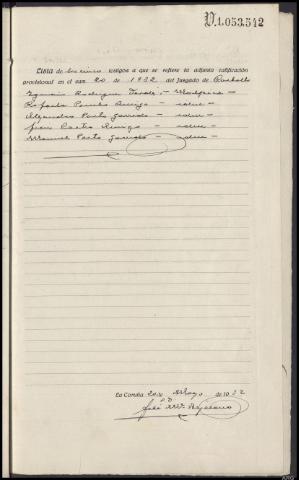 V.1.053.542
Lista de los cinco testigos a que se refiere la adjunta calificación
provisional en el sum. 20 de 1932 del Juzgado de Carballo
Ignacio Rodriguez — Malpica
Rafaela — idem
Alejandro Pardo Garrido — idem
Juan Castro — idem
Manuel Pardo Garrido — idem
La Coruña 20 de Mayo de 1932
José Mª